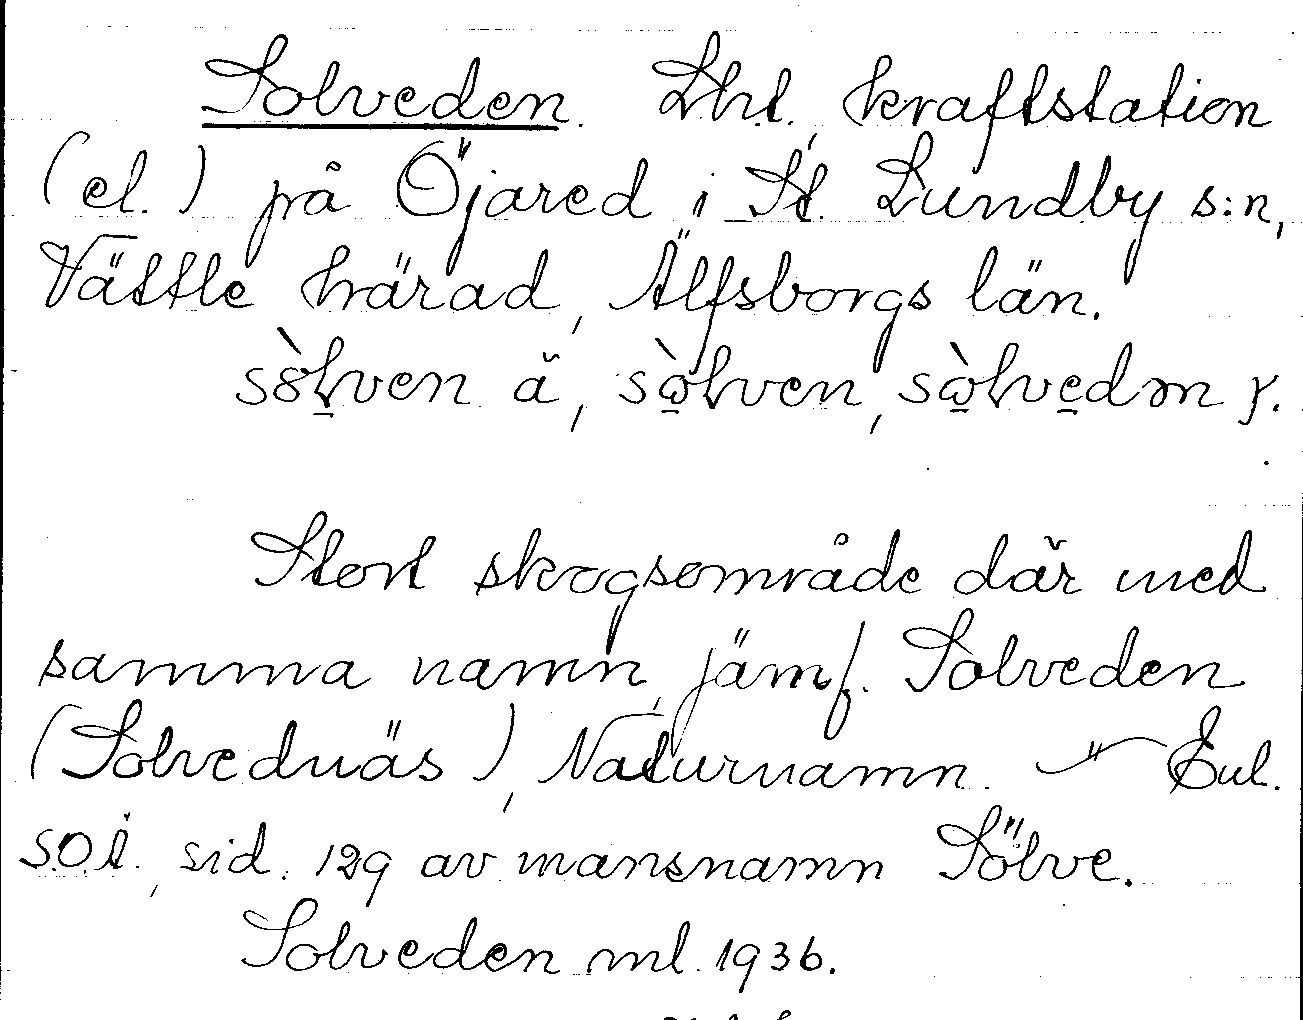 Solveden. Lht., kraftstation
(el.) på Öjared i St. Lundby s:n,
Vättle härad, Älfsborgs län.
sòlven ä, sòlven, sòlvedən γ.
Stort skogsområde där med
samma namn, jämf. Solveden
(Solvednäs), Naturnamn. Enl.
S.O.i., sid. 129 av mansnamn Sölve.
Solveden ml. 1936.